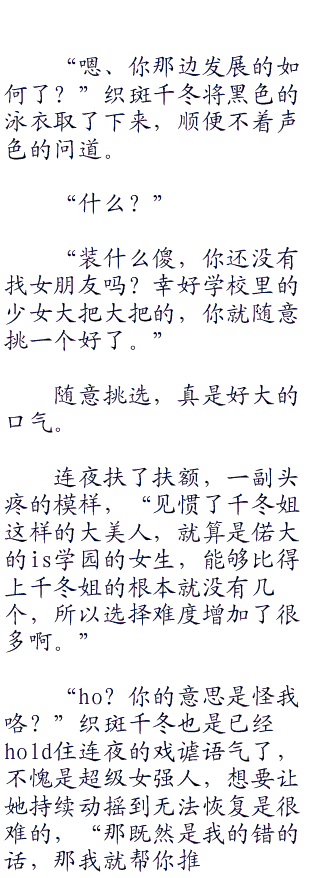 “嗯、你那边发展的如
何了？”织斑千冬将黑色的
泳衣取了下来，顺便不着声
色的问道。
“什么？”
“装什么傻，你还没有
找女朋友吗？幸好学校里的
少女大把大把的，你就随意
挑一个好了。”
随意挑选，真是好大的
口气。
连夜扶了扶额，一副头
疼的模样，“见惯了千冬姐
这样的大美人，就算是偌大
的is学园的女生，能够比得
上千冬姐的根本就没有几
个，所以选择难度增加了很
多啊。”
“ho？你的意思是怪我
咯？”织斑千冬也是已经
hold住连夜的戏谑语气了，
不愧是超级女强人，想要让
她持续动摇到无法恢复是很
难的，“那既然是我的错的
话，那我就帮你推